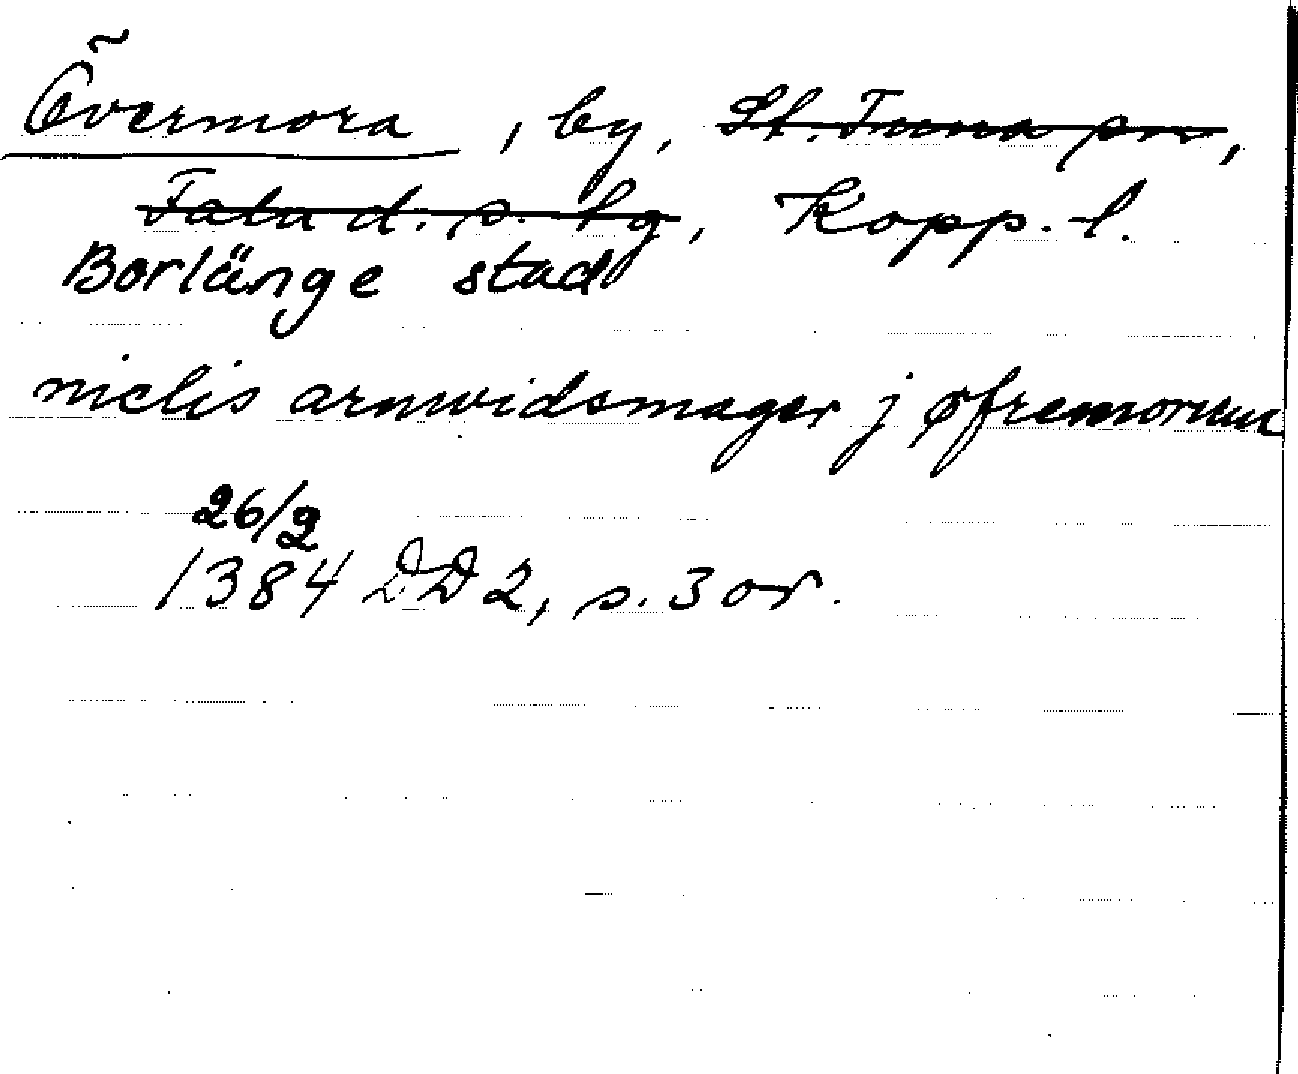 Övermora, by, St. Tuna sn,
Falu d. s. tg, Kopp. l.
Borlänge stad
niclis arnwidsmager j øfremorum
26/2
1384 DD 2, s. 3 or.